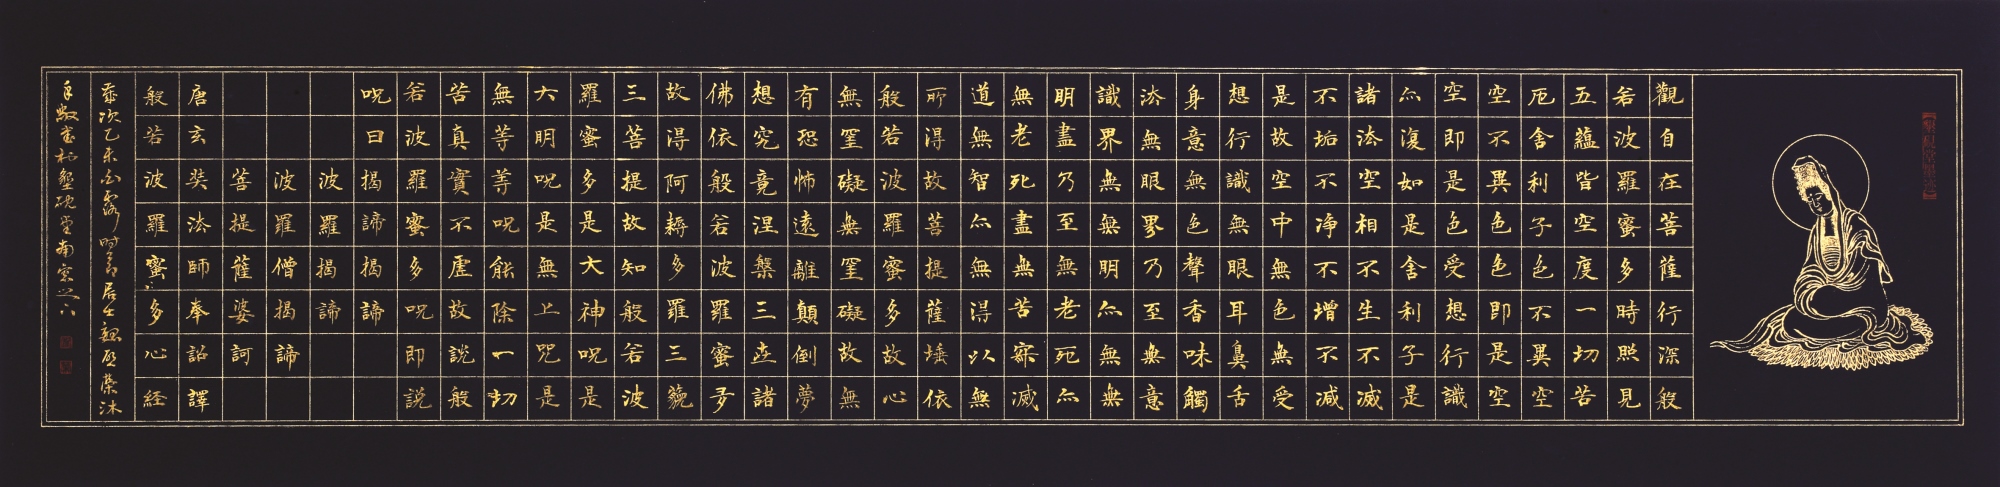 觀自在菩薩行深般
若波羅蜜多時照見
五蘊皆空度一切苦
厄舍利子色不異空
空不異色色即是空
空即是色受想行識
亦復如是舍利子是
諸法空相不生不滅
不垢不净不增不減
是故空中無色無受
想行識無眼耳鼻舌
身意無色聲香味觸
法無眼界乃至無意
識界無無明亦無無
明盡乃至無老死亦
無老死盡無苦寂滅
道無智亦無得以無
所得故菩提薩埵依
般若波羅蜜多故心
無罣礙無罣礙故無
有恐怖遠離顛倒夢
想究竟涅槃三世諸
佛依般若波羅蜜多
故得阿耨多羅三藐
三菩提故知般若波
羅蜜多是大神呪是
大明呪是無上咒是
無等等呪能除一切
苦真實不虛故說般
若波羅蜜多呪即説
呪曰揭諦揭諦
波羅揭諦
波羅僧揭諦
菩提薩婆訶
唐玄奘法師奉詔譯
般若波羅蜜多心経
歲次乙未白露時節居士魏榮沐
手敬書於堂南窗之下